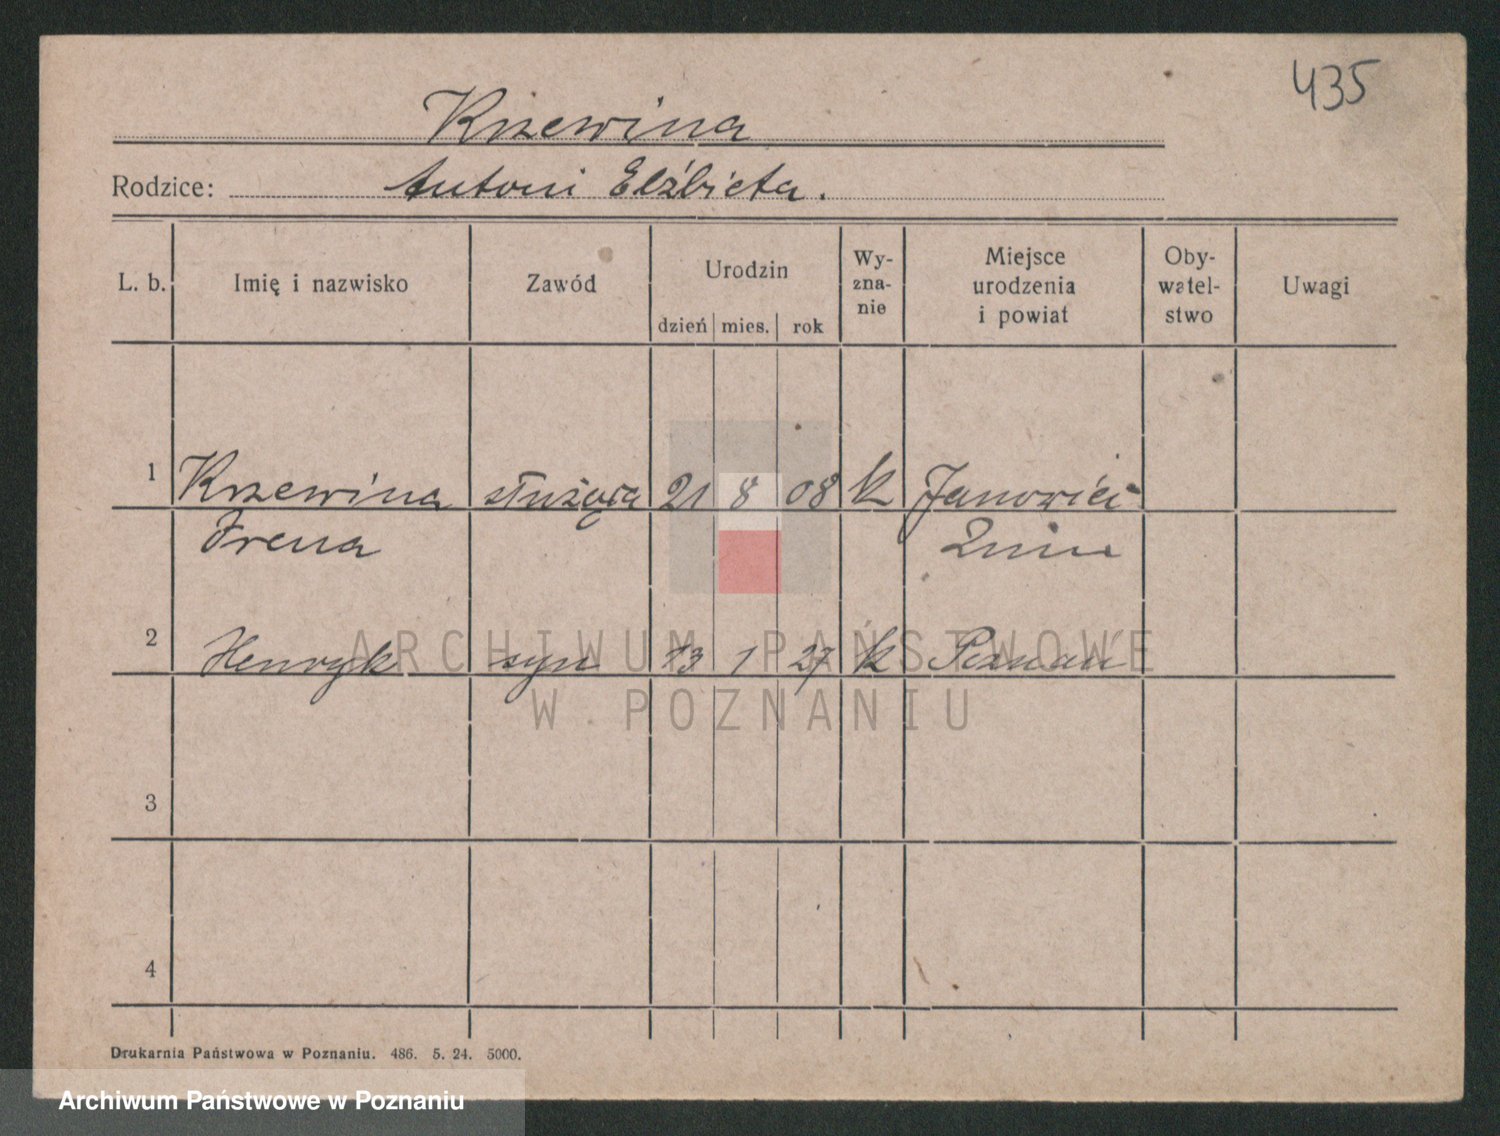 435
Krzewina
Rodzice: Antoni Elżbieta.
L. b. Imię i nazwisko Zawód Urodzin Wy-zna-nie Miejsce urodzenia i powiat Oby-watel-stwo Uwagi
dzień mies. rok
1 Krzewina służąca 21 8 08 k
Irena Żnin
2 Henryk syn 13 1 27 k Poznań
3
4
ARCHIWUM PAŃSTWOWE
W POZNANIU
Drukarnia Państwowa w Poznaniu. 486. 5. 24. 5000.
Archiwum Państwowe w Poznaniu